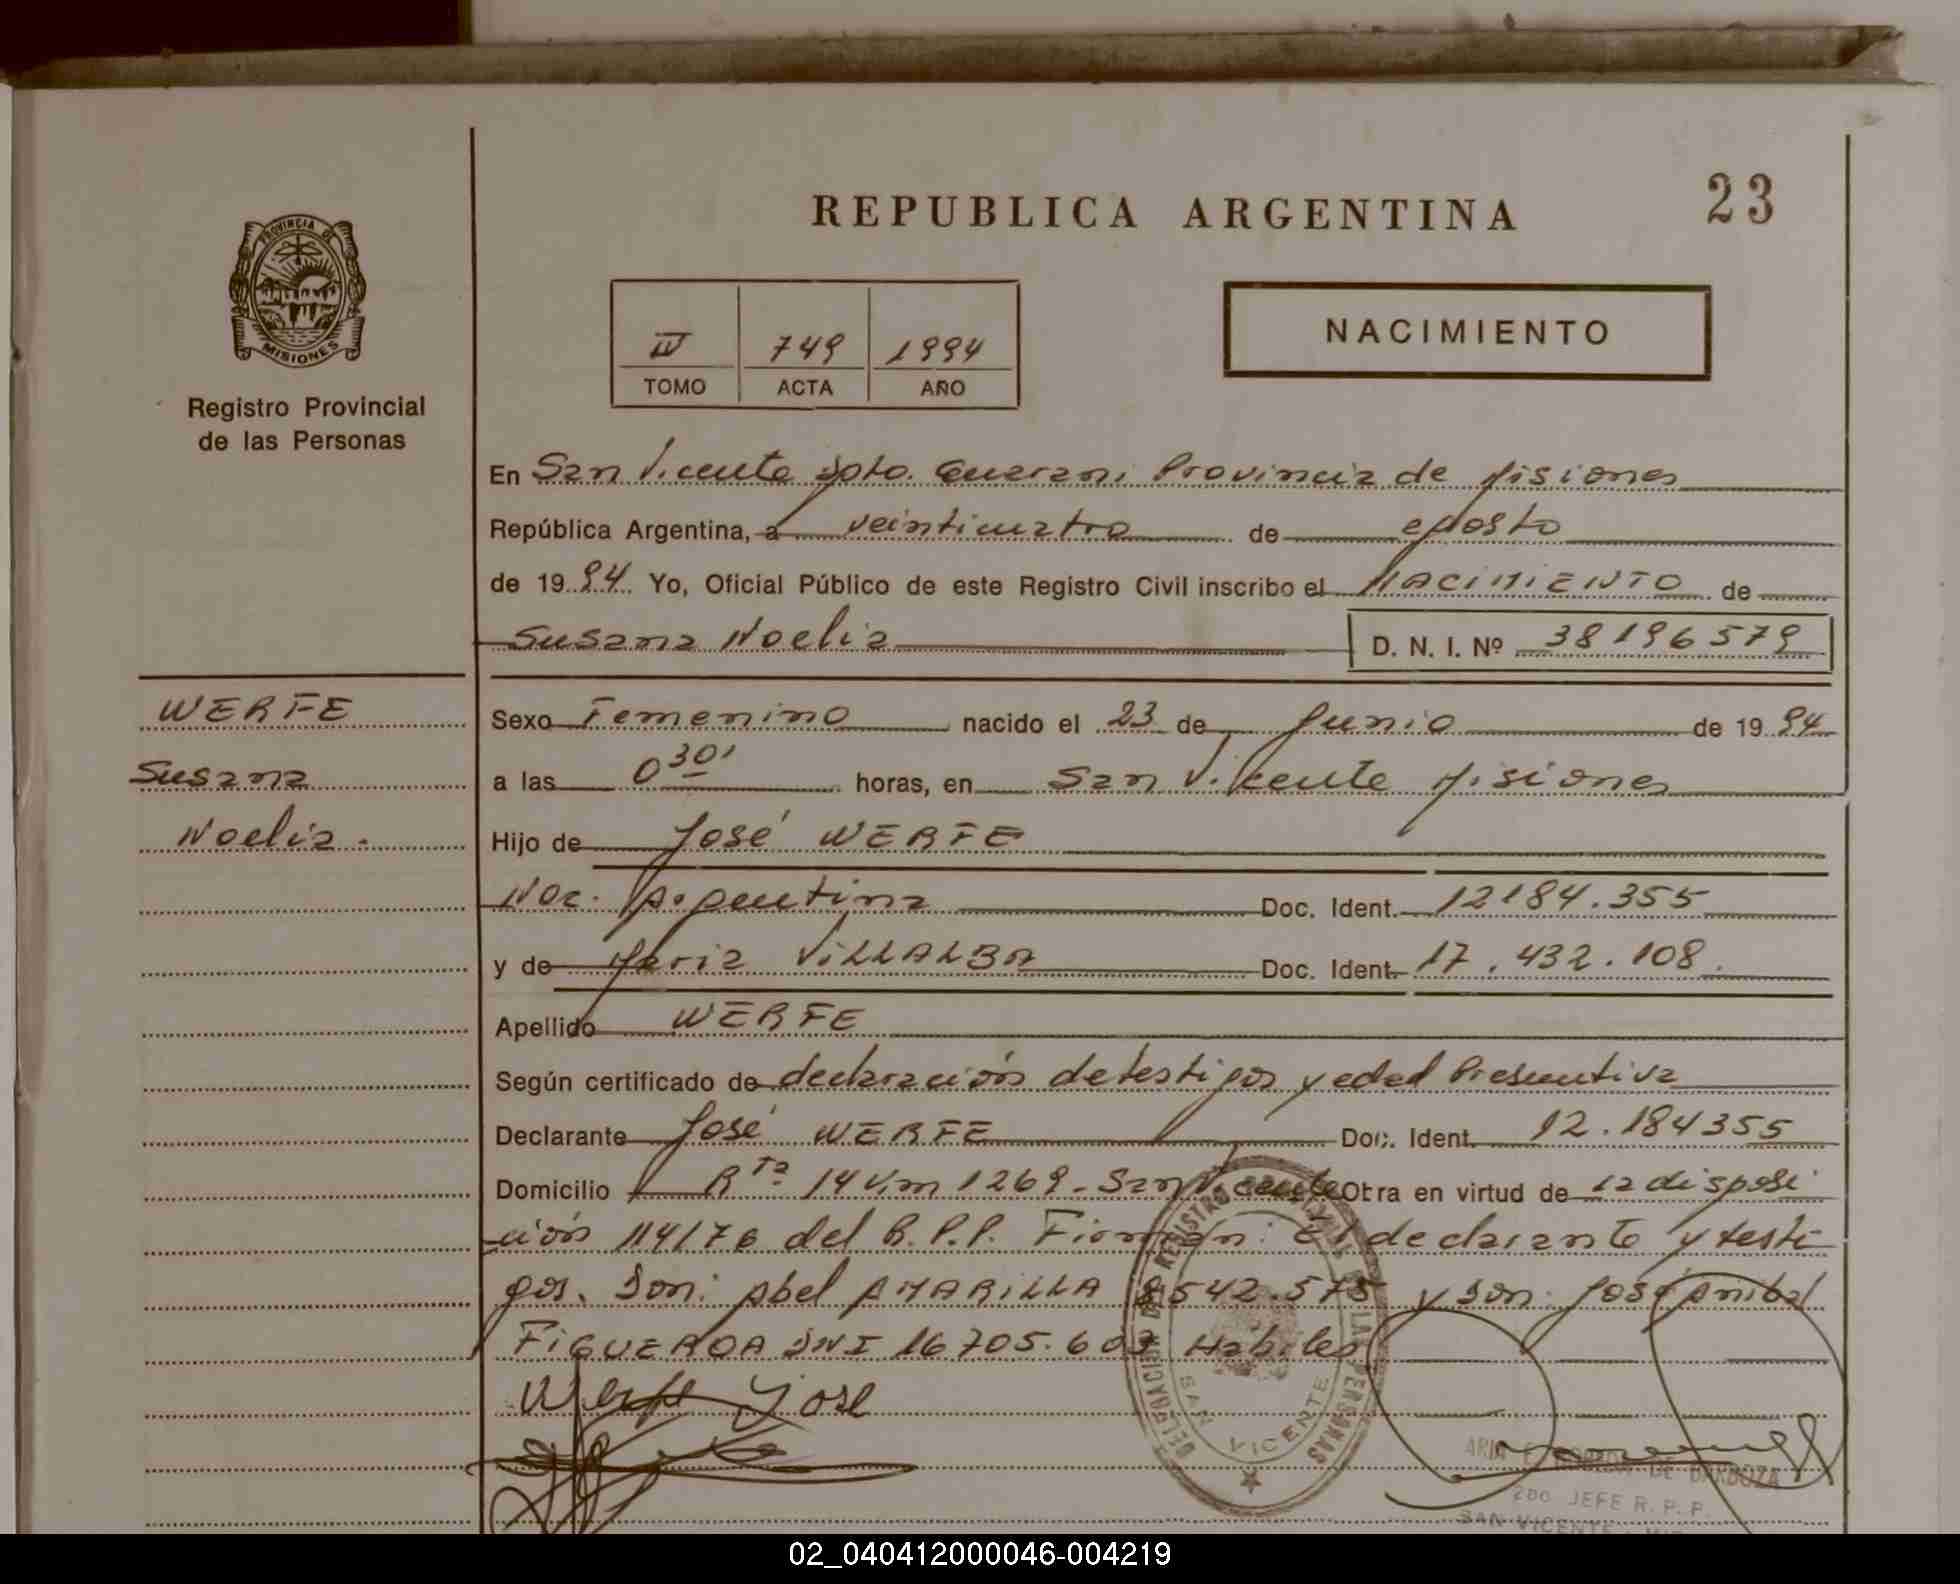 REPUBLICA ARGENTINA
23
PROVINCIA DE
MISIONES
Registro Provincial
de las Personas
IV 749 1994
TOMO ACTA AÑO
NACIMIENTO
En San Vicente Dpto. Guarani Provincia de Misiones
República Argentina, a veinticuatro de agosto
de 1994 Yo, Oficial Público de este Registro Civil inscribo el NACIMIENTO de
Susana Noelia
D. N. I. Nº 38196579
WERFE
Susana
Noelia.
Sexo Femenino nacido el 23 de Junio de 1994
a las 0 30' horas, en San Vicente Misiones
Hijo de José WERFE
Nac. Argentina Doc. Ident. 12184.355
y de Maria VILLALBA Doc. Ident. 17.432.108.
Apellido WERFE
Según certificado de declaración de testigos y edad Presuntiva
Declarante José WERFE Doc. Ident. 12.184355
Domicilio Rta 14 Km 1269 - San Vicente Otra en virtud de la disposi
ción 114/76 del R.P.P. Firman: El declarante y testi
gos. Don: Abel AMARILLA 8542.575 y Don: José Anibal
FIGUEROA DNI 16705.603 Hábiles
Werfe Jose
DELEGACION DE REGISTRO PROVINCIAL DE LAS PERSONAS
SAN VICENTE
DE BARBOZA
2DO JEFE R. P. P.
SAN VICENTE
02_040412000046-004219